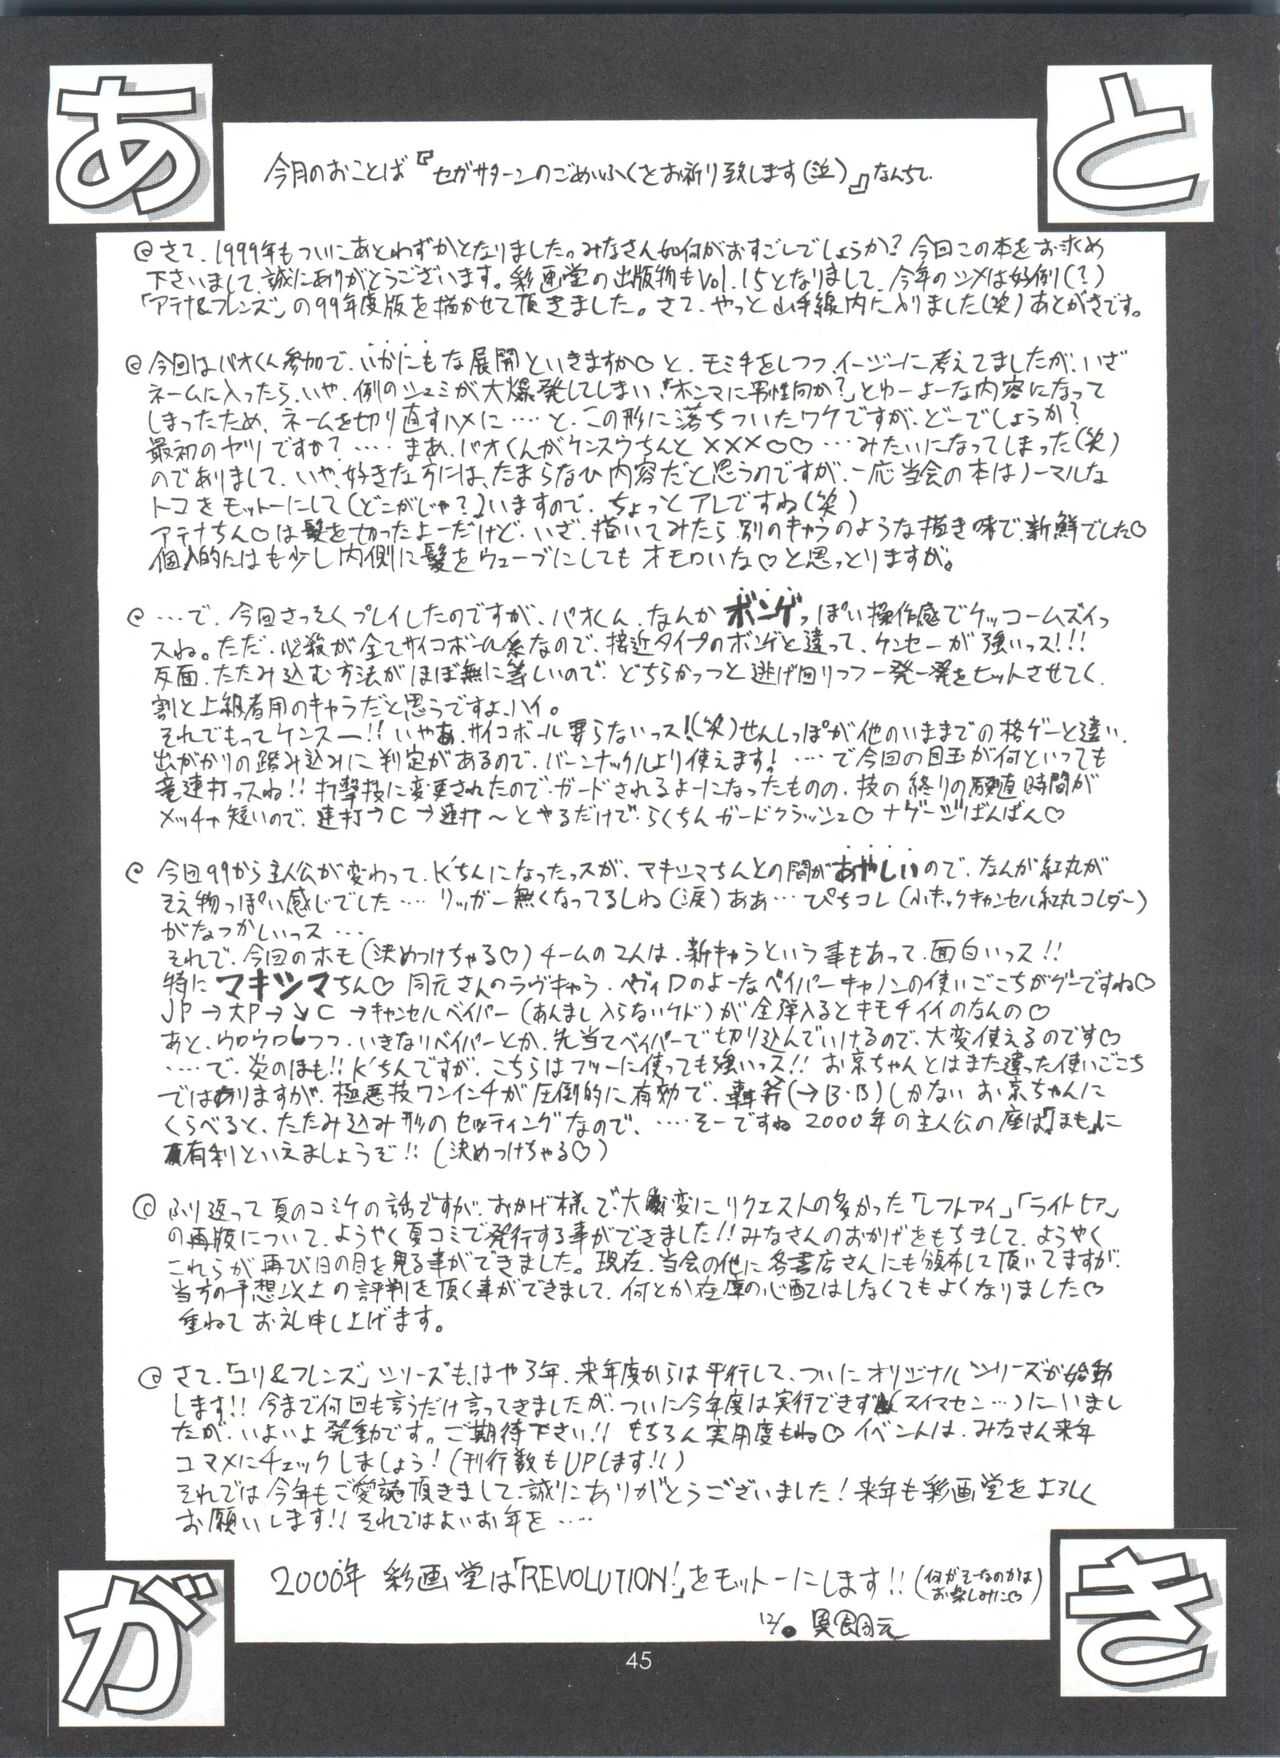 あとがき
今月のおことば『セガサターンのごめいふくをお祈り致します(泣)』なんちて.
@さて、1999年もついにあとわずかとなりました。みなさん如何がおすごしでしょうか? 今回この本をお求め
下さいまして、誠にありがとうございます。彩画堂の出版物もVol.15となりまして、今年のシメは好例(?)
「アテナ&フレンズ」の99年度版を描かせて頂きました。さて、やっと山手線内に入りました(笑)あとがきです。
@今回はバオくん参加で、いかにもな展開といきますか♡ と、モミ手をしつつイージーに考えてましたが、いざ
ネームに入ったら、いや、例のシュミが大爆発してしまい「ホンマに男性向か?」とゆーよーな内容になって
しまったため、ネームを切り直すハメに……と、この形に落ちついたワケですが、どーでしょうか?
最初のヤツですか? …… まあ、バオくんがケンスウちんと×××♡♡ …みたいになってしまった(笑)
のでありまして、いや、好きな方には、たまらなひ内容だと思うのですが、一応当会の本はノーマルな
トコをモットーにして(どこがじゃ?)いますので、ちょっとアレですね(笑)
アテナちん♡は髪を切ったよーだけど、いざ、描いてみたら別のキャラのような描き味で、新鮮でした♡
個人的にはも少し内側に髪をウェーブにしてもオモロいな♡と思っとりますが。
@…で、今回さっそくプレイしたのですが、バオくん、なんかボンゲっぽい操作感でケッコームズイっ
スね。ただ、必殺が全てサイコボール系なので、接近タイプのボンゲと違って、ケンセーが強いっス!!!
反面、たたみ込む方法がほぼ無に等しいので、どちらかっつと逃げ回りつつ一発一発をヒットさせてく、
割と上級者用のキャラだと思うですよ、ハイ。
それでもってケンスー!! いやあ、サイコボール要らないっス!(笑)せんしっぽが他のいままでの格ゲーと違い、
出がかりの踏み込みに判定があるので、バーンナックルより使えます! …… で今回の目玉が何といっても
竜連打っスね!! 打撃技に変更されたので、ガードされるよーになったものの、技の終りの硬直時間が
メッチャ短いので、連打→C→連打〜とやるだけで、らくちんガードクラッシュ♡ナゲージばんばん♡
@今回99から主人公が変わって、K'ちんになったっスが、マキシマちんとの間があやしいので、なんか紅丸が
そえ物っぽい感じでした…… リッガー無くなってるしね(涙)ああ…ぴちコレ(小キックキャンセル紅丸コレダー)
がなつかしいっス…
それで、今回のホモ(決めつけちゃる♡)チームの2人は、新キャラという事もあって、面白いっス!!
特にマキシマちん♡ 同元さんのラヴキャラ・ヘヴィDのよーなベイパーキャノンの使いごこちがグーですね♡
JP→大P→↘C→キャンセルベイパー(あんまし入らないケド)が全弾入るとキモチイイのなんの♡
あと、ウロウロしつつ、いきなりベイパーとか、先当てベイパーで切り込んでいけるので、大変使えるのです♡
……で、炎のほも!! K'ちんですが、こちらはフツーに使っても強いっス!! お京ちゃんとはまた違った使いごこち
ではありますが、極悪技ワンインチが圧倒的に有効で、轟斧(→B・B)しかない お京ちゃんに
くらべると、たたみ込み形のセッティングなので、……そーですね 2000年の主人公の座は『ほも』に
有利といえましょうぞ!! (決めつけちゃる♡)
@ふり返って夏のコミケの話ですが、おかげ様で、大変にリクエストの多かった「レフトアイ」「ライトヒア」
の再版について、ようやく夏コミで発行する事ができました!! みなさんのおかげをもちまして、ようやく
これらが再び日の目を見る事ができました。現在、当会の他に各書店さんにも頒布して頂いてますが、
当方の予想以上の評判を頂く事ができまして、何とか在庫の心配はしなくてもよくなりました♡
重ねてお礼申し上げます。
@さて、「ユリ&フレンズ」シリーズも、はや3年、来年度からは平行して、ついにオリジナルシリーズが始動
します!! 今まで何回も言うだけ言ってきましたが、ついに今年度は実行できず(スイマセン…)にいまし
たが、いよいよ発動です。ご期待下さい!! もちろん実用度もね♡ イベントは、みなさん来年
コマメにチェックしましょう!(刊行数もUPします!!)
それでは今年もご愛読頂きまして、誠にありがとうございました! 来年も彩画堂をよろしく
お願いします!! それではよいお年を……
2000年 彩画堂は「REVOLUTION!」をモットーにします!! (何がそーなのかはお楽しみに♡)
12/. 異国同元
45